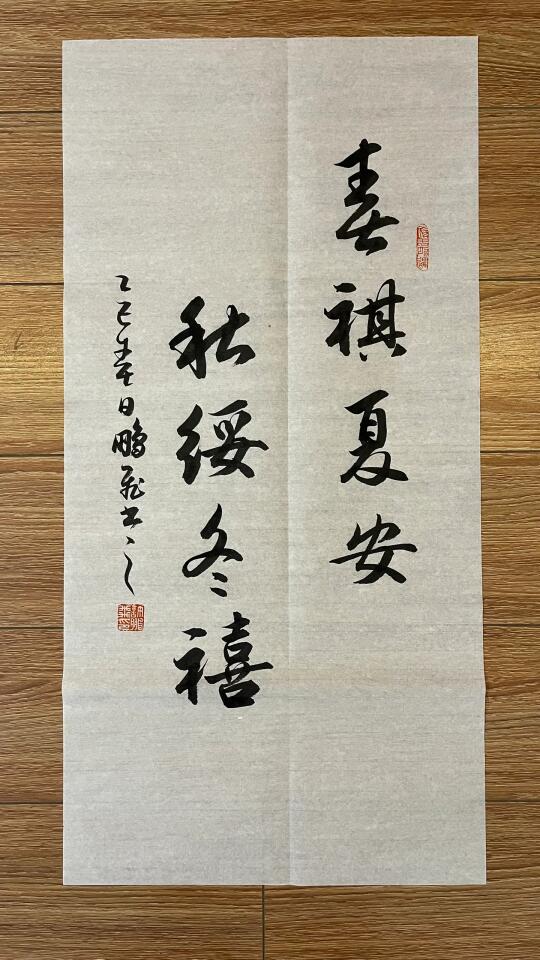 春祺夏安
秋绥冬禧
乙巳春日鹏飞书之